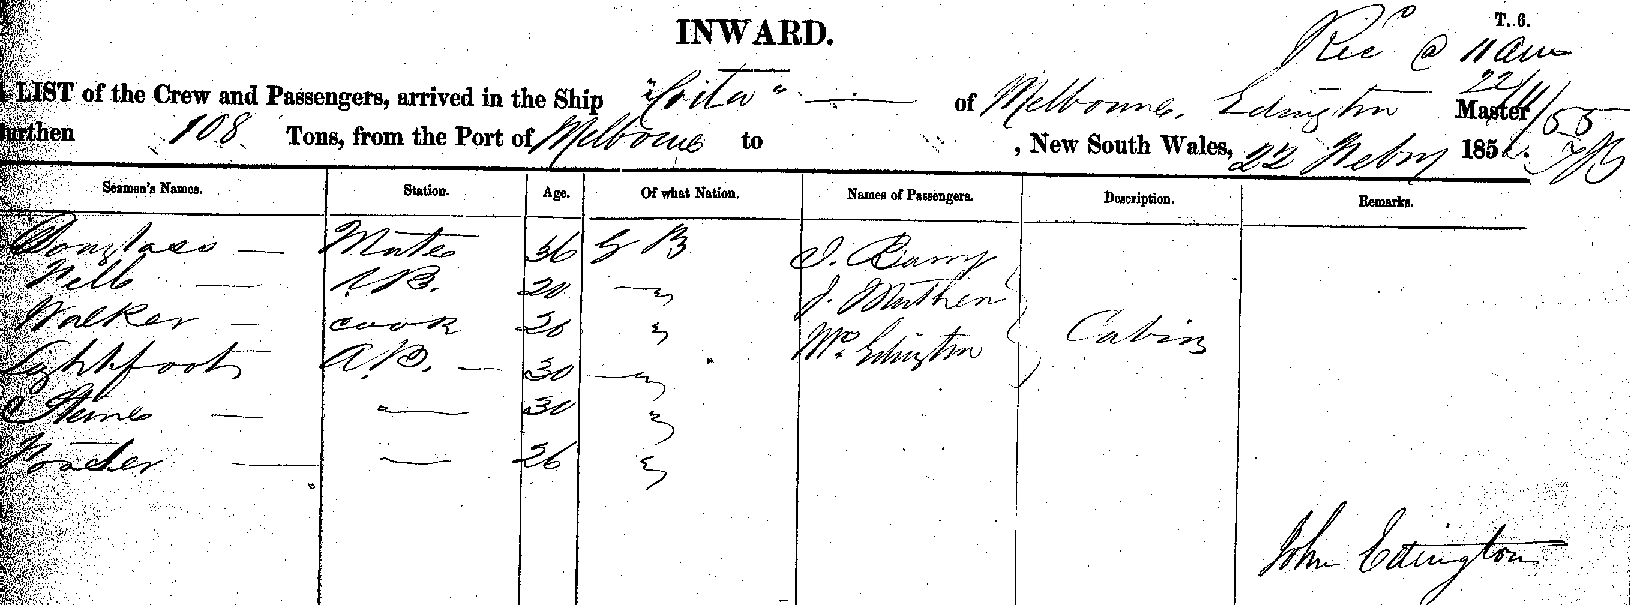 T. 6.
INWARD.
Recd @ 11 am
LIST of the Crew and Passengers, arrived in the Ship of Melbourne, Edington Master
22/11/55
urthen 108 Tons, from the Port of Melbourne to , New South Wales, 22 185
Seamen's Names. Station. Age. Of what Nation. Names of Passengers. Description. Remarks.
Douglass — Mate 36 G B J. Barry
— A.B. 20 — " J.
Walker — Cook 26 " Mrs. Edington Cabin
Lightfoot A.B. — 30 — "
— " — 30 "
— — 26 "
John Edington